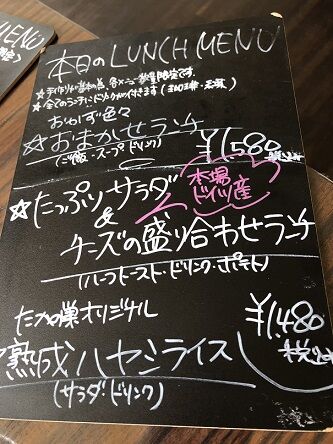 MENU
本日のLUNCH MENU
☆手作りが基本の為、各メニュー数量限定です
☆全てのランチにドリンクが付きます
おかず色々
☆おまかせランチ
(ご飯・スープ・ドリンク)
¥1,580
☆たっぷりサラダ
&
本場
ドイツ産
チーズの盛り合わせランチ
(ハーフトースト・ドリンク・ポテト)
たかの巣オリジナル
¥1,480
熟成ハヤシライス
(サラダ・ドリンク)